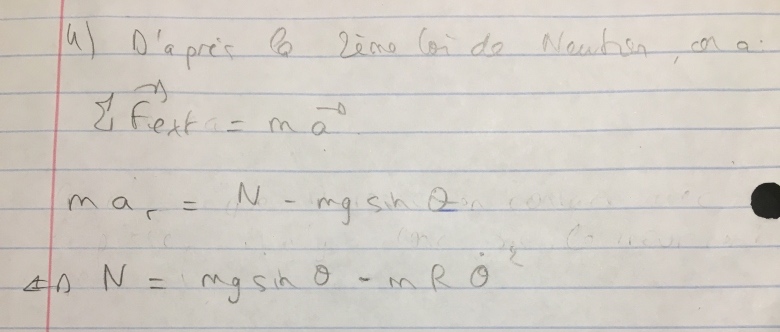 4) D'après la 2ème loi de Newton, on a :
Σ F⃗ext = m a⃗
m a_r = N - mg sin θ
⇔ N = mg sin θ - m R θ̇²